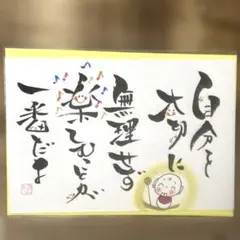 自分を
大切に
無理せず
楽しむことが
一番だよ